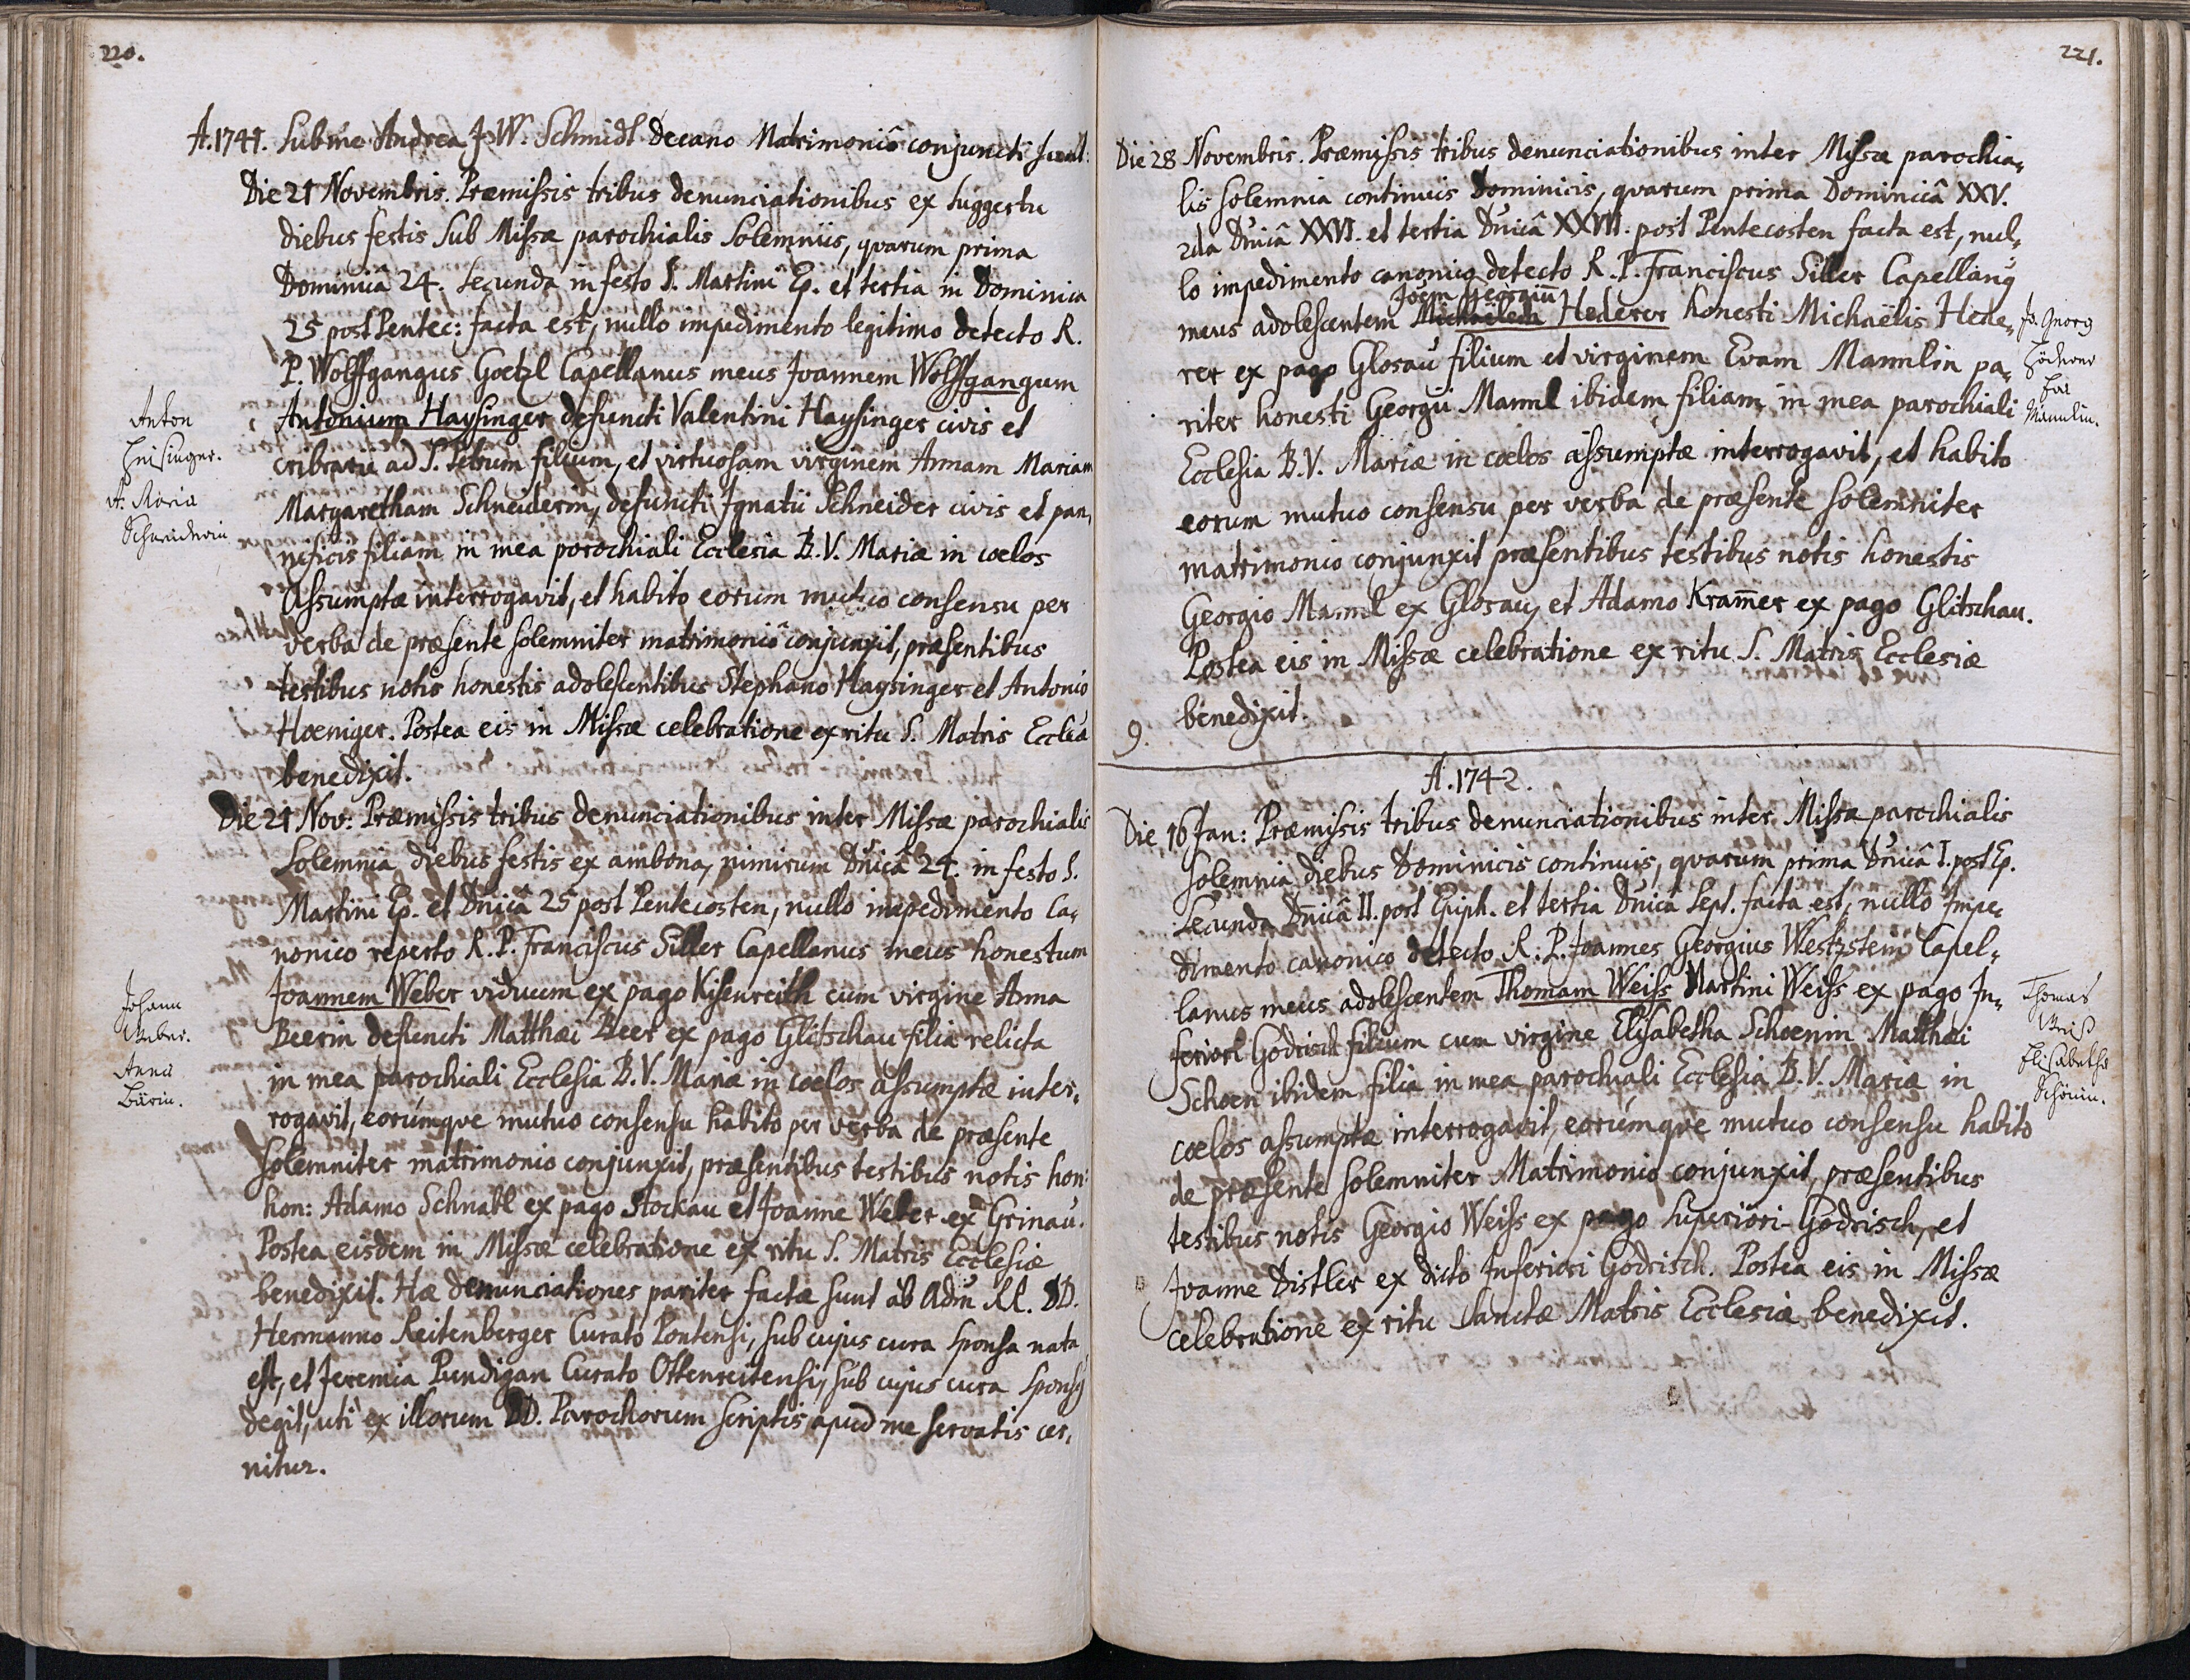 220.
A. 1741. Sub me Andrea J. W. Schmidl Decano Matrimoniô conjuncti sunt:
Die 21 Novembris. Præmissis tribus denunciationibus ex suggestu
diebus festis sub Missæ parochialis Solemniis, qvarum prima
Dominicâ 24. secunda in festo S. Martini Ep. et tertia in Dominica
25 post Pentec: facta est, nullo impedimento legitimo detecto R.
P. Wolffgangus Goetzl Capellanus meus Joannem Wolffgangum
Antonium Haysinger defuncti Valentini Haysinger civis et
cribrarii ad S. Petrum filium, et virtuosam virginem Annam Mariam
Margaretham Schneiderin, defuncti Ignatii Schneider civis et pan,
nificis filiam in mea parochiali Ecclesia B. V. Mariæ in coelos
Assumptæ interrogavit, et habito eorum mutuo consensu per
verba de præsente solemniter matrimoniô conjunxit, præsentibus
testibus notis honestis adolescentibus Stephano Haysinger et Antonio
Hoeniger. Postea eis in Missæ celebratione ex ritu S. Matris Eccliæ
benedixit.
Anton
Heisinger.
A. Maria
Schneiderin
Die 21 Nov: Præmissis tribus denunciationibus inter Missæ parochialis
Solemnia diebus festis ex ambona, nimirum Dnicâ 24. in festo S.
Martini Ep. et Dnicâ 25 post Pentecosten, nullo impedimento Ca,
nonico reperto R. P. Franciscus Siller Capellanus meus honestum
Joannem Weber viduum ex pago Kisenreith cum virgine Anna
Beerin defuncti Matthæi Beer ex pago Glitschau filia relicta
in mea parochiali Ecclesia B. V. Mariæ in coelos assumptæ inter,
rogavit, eorúmqve mutuo consensu habito per verba de præsente
solemniter matrimonio conjunxit, præsentibus testibus notis hon:
hon: Adamo Schnabl ex pago Stockau et Joanne Weber ex Grinau.
Postea eisdem in Missæ celebratione ex ritu S. Matris Ecclesiæ
benedixit. Hæ denunciationes pariter factæ sunt ab Adm RR. DD.
Hermanno Reitenberger Curato Pontensi, sub cujus cura sponsa nata
est, et Jeremia Pundigan Curato Ottenreitensi, sub cujus cura Sponsg
degit, uti ex illorum DD. Parochorum scriptis apud me servatis cer,
nitur.
Johann
Weber.
Anna
Bärin.
221.
Die 28 Novembris. Præmissis tribus denunciationibus inter Missæ parochia,
lis solemnia continuis Dominicis, qvarum prima Dominicâ XXV.
2da Dnicâ XXVI. et tertia Dnicâ XXVII. post Pentecosten facta est, nul,
lo impedimento canonico detecto R. P. Franciscus Siller Capellang
Joem Georgiu
meus adolescentem Michaelem Hederer honesti Michaëlis Hede,
rer ex pago Glosau filium et virginem Evam Mannlin pa,
riter honesti Georgii Mannl ibidem filiam in mea parochiali
Ecclesia B. V. Mariæ in coelos assumptæ interrogavit, et habito
eorum mutuo consensu per verba de præsente solemniter
matrimonio conjunxit præsentibus testibus notis honestis
Georgio Mannl ex Glosau, et Adamo Kram̄er ex pago Glitschau.
Postea eis in Missæ celebratione ex ritu S. Matris Ecclesiæ
benedixit.
Jo. Georg
Höderer
Eva
Mannlin.
9.
A. 1742.
Die 16 Jan: Præmissis tribus denunciationibus inter Missæ parochialis
solemnia diebus Dominicis continuis, qvarum prima Dnicâ I. post Ep.
Secunda Dnicâ II. post Epiph. et tertia Dnicâ Sept. facta est, nullo Impe,
dimento canonico detecto R: P. Joannes Georgius Westzstein Capel,
lanus meus adolescentem Thomam Weiss Martini Weiss ex pago In,
feriori Gödrisch filium cum virgine Elisabetha Schoenin Matthæi
Schoen ibidem filia in mea parochiali Ecclesia B. V. Mariæ in
coelos assumptæ interrogavit, eorúmqve mutuo consensu habito
de præsente solemniter Matrimonio conjunxit, præsentibus
testibus notis Georgio Weiss ex pago Superiori Gödrisch, et
Joanne Distler ex dicto Inferiori Gödrisch. Postea eis in Missæ
celebratione ex ritu Sanctæ Matris Ecclesiæ benedixit.
Thomas
Weiß
Elisabetha
Schönin.